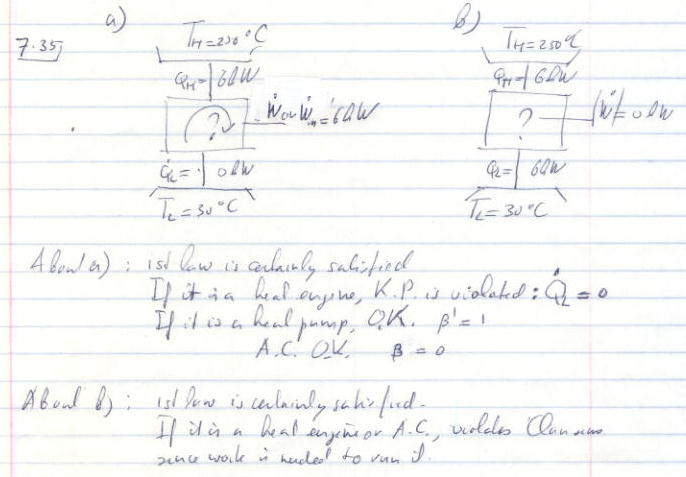 a)
b)
7.35)
T_H = 250°C
T_H = 250°C
Q̇_H = 6 kW
Q̇_H 6 kW
?
Ẇ or Ẇ_in = 6 kW
?
|Ẇ| = 0 kW
Q̇_L = 0 kW
Q̇_L = 6 kW
T_L = 30°C
T_L = 30°C
About a) : 1st law is certainly satisfied
If it is a heat engine, K.P. is violated : Q̇_L = 0
If it is a heat pump, O.K. β' = 1
A.C. O.K. β = 0
About b) : 1st law is certainly satisfied.
If it is a heat engine or A.C., violates Clausius
since work is needed to run it.